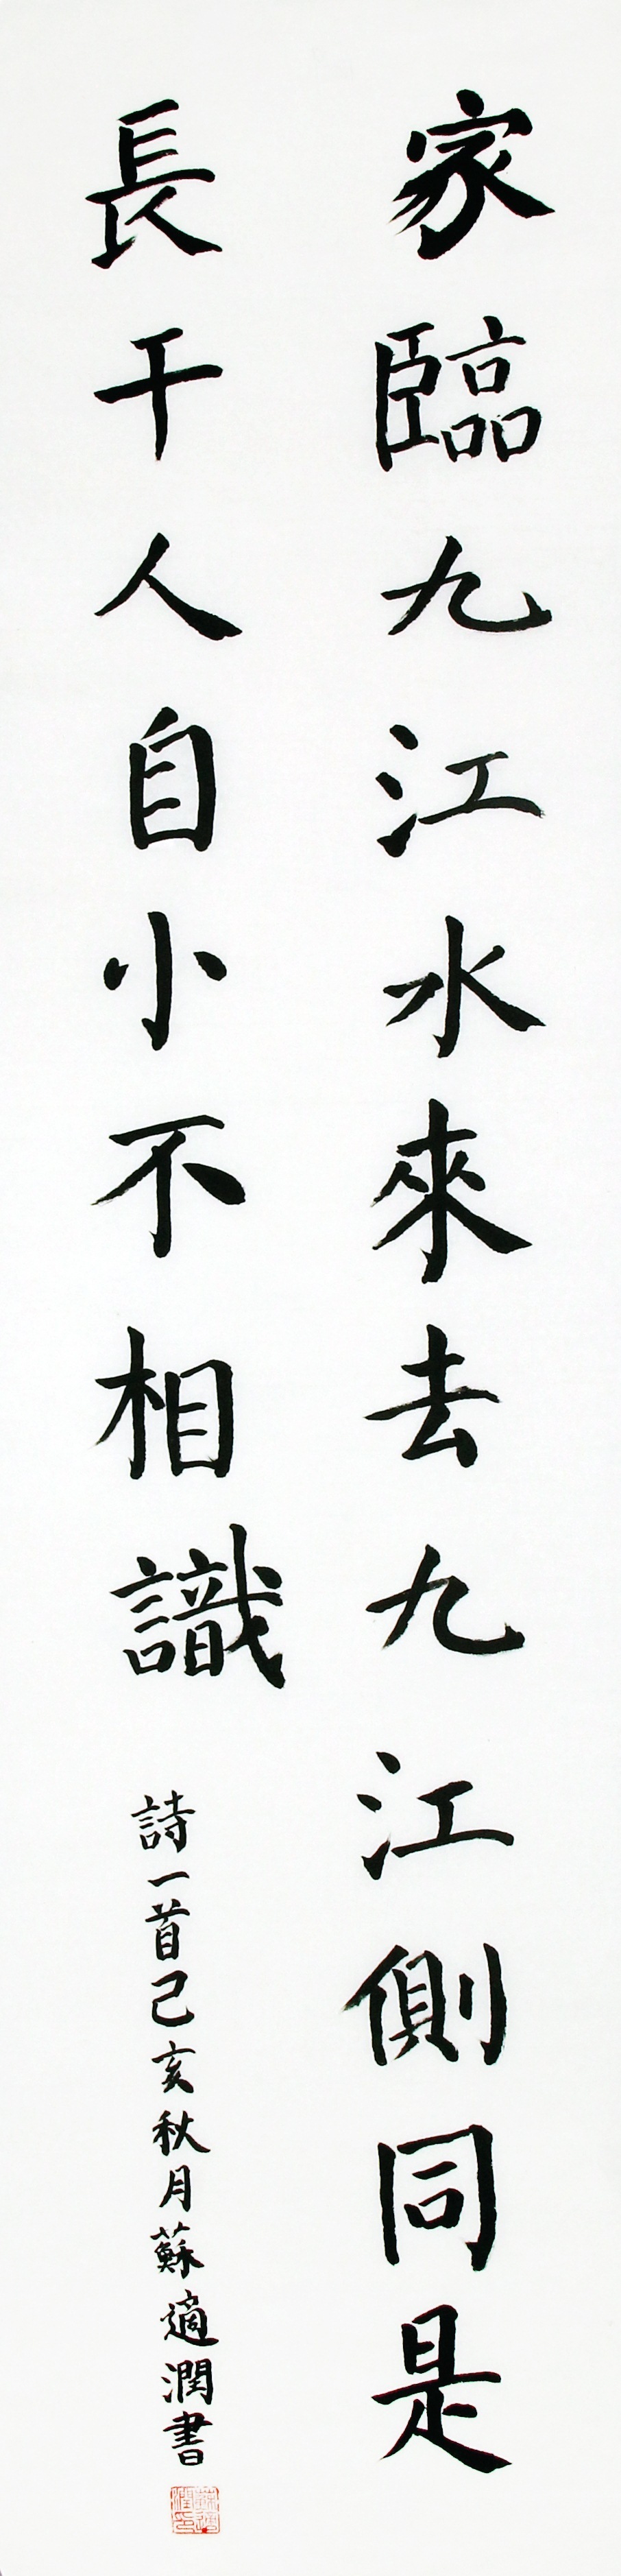 家臨九江水來去九江側同是
長干人自小不相識
詩一首己亥秋月蘇適潤書
蘇適潤印